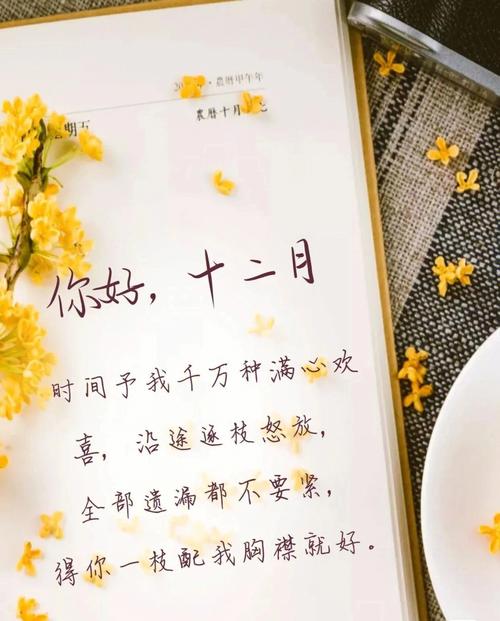 2 · 農曆甲午年
農曆十月
期五
你好，十二月
时间予我千万种满心欢
喜，沿途逐枝怒放，
全部遗漏都不要紧，
得你一枝配我胸襟就好。